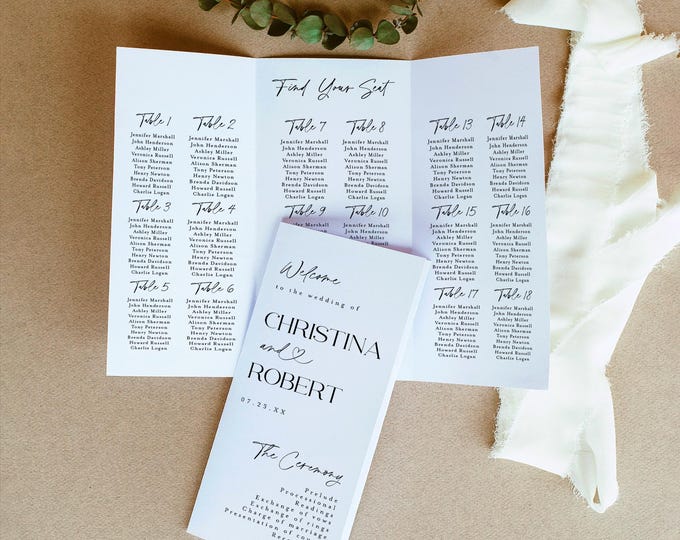 Find Your Seat
Table 1
Jennifer Marshall
John Henderson
Ashley Miller
Veronica Russell
Alison Sherman
Tony Peterson
Henry Newton
Brenda Davidson
Howard Russell
Charlie Logan
Table 2
Jennifer Marshall
John Henderson
Ashley Miller
Veronica Russell
Alison Sherman
Tony Peterson
Henry Newton
Brenda Davidson
Howard Russell
Charlie Logan
Table 3
Jennifer Marshall
John Henderson
Ashley Miller
Veronica Russell
Alison Sherman
Tony Peterson
Henry Newton
Brenda Davidson
Howard Russell
Charlie Logan
Table 4
Jennifer Marshall
John Henderson
Ashley Miller
Veronica Russell
Alison Sherman
Tony Peterson
Henry Newton
Brenda Davidson
Howard Russell
Charlie Logan
Table 5
Jennifer Marshall
John Henderson
Ashley Miller
Veronica Russell
Alison Sherman
Tony Peterson
Henry Newton
Brenda Davidson
Howard Russell
Charlie Logan
Table 6
Jennifer Marshall
John Henderson
Ashley Miller
Veronica Russell
Alison Sherman
Tony Peterson
Henry Newton
Brenda Davidson
Howard Russell
Charlie Logan
Table 7
Jennifer Marshall
John Henderson
Ashley Miller
Veronica Russell
Alison Sherman
Tony Peterson
Henry Newton
Brenda Davidson
Howard Russell
Charlie Logan
Table 8
Jennifer Marshall
John Henderson
Ashley Miller
Veronica Russell
Alison Sherman
Tony Peterson
Henry Newton
Brenda Davidson
Howard Russell
Charlie Logan
Table 9
Table 10
Jennifer Marshall
Table 13
Jennifer Marshall
John Henderson
Ashley Miller
Veronica Russell
Alison Sherman
Tony Peterson
Henry Newton
Brenda Davidson
Howard Russell
Charlie Logan
Table 14
Jennifer Marshall
John Henderson
Ashley Miller
Veronica Russell
Alison Sherman
Tony Peterson
Henry Newton
Brenda Davidson
Howard Russell
Charlie Logan
Table 15
Jennifer Marshall
John Henderson
Ashley Miller
Veronica Russell
Alison Sherman
Tony Peterson
Henry Newton
Brenda Davidson
Howard Russell
Charlie Logan
Table 16
Jennifer Marshall
John Henderson
Ashley Miller
Veronica Russell
Alison Sherman
Tony Peterson
Henry Newton
Brenda Davidson
Howard Russell
Charlie Logan
Table 17
Jennifer Marshall
John Henderson
Ashley Miller
Veronica Russell
Alison Sherman
Tony Peterson
Henry Newton
Brenda Davidson
Howard Russell
Charlie Logan
Table 18
Jennifer Marshall
John Henderson
Ashley Miller
Veronica Russell
Alison Sherman
Tony Peterson
Henry Newton
Brenda Davidson
Howard Russell
Charlie Logan
Welcome
to the wedding of
CHRISTINA
and
ROBERT
07.25.XX
The Ceremony
Prelude
Processional
Readings
Exchange of vows
Exchange of rings
Charge of marriage
Presentation of